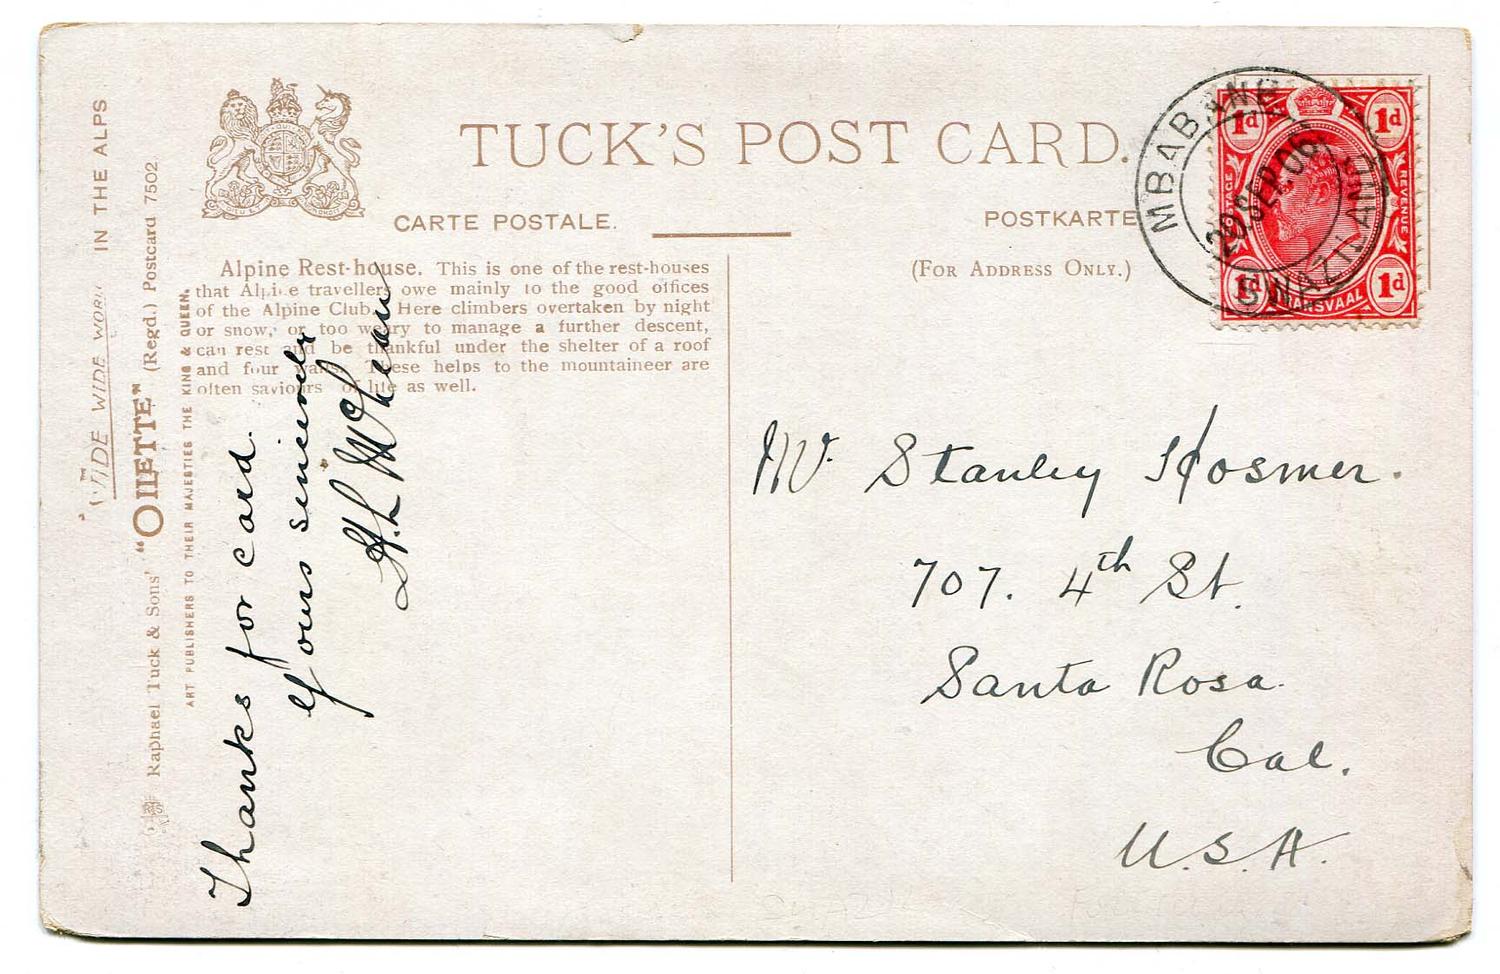 TUCK'S POST CARD.
CARTE POSTALE.
POSTKARTE
(FOR ADDRESS ONLY.)
Alpine Rest-house. This is one of the rest-houses
that Alpine travellers owe mainly to the good offices
of the Alpine Club. Here climbers overtaken by night
or snow, or too weary to manage a further descent,
can rest and be thankful under the shelter of a roof
and four walls. These helps to the mountaineer are
often saviours of life as well.
IN THE ALPS
"WIDE WIDE WORLD"
Raphael Tuck & Sons' "OILETTE" (Regd.) Postcard 7502.
ART PUBLISHERS TO THEIR MAJESTIES THE KING & QUEEN.
Thanks for card.
Yours sincerely
MBABANE
20 SEP 06
SWAZILAND
1d 1d
POSTAGE REVENUE
1d TRANSVAAL 1d
Mr. Stanley Hosmer.
707. 4th St.
Santa Rosa.
Cal.
U.S.A.